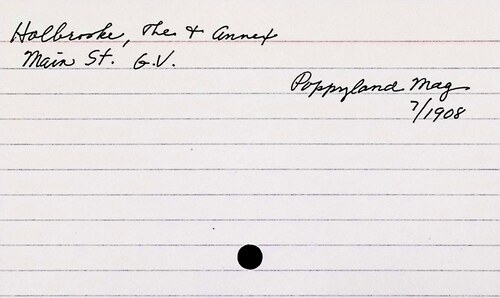 Holbrooke, The + Annex
Main St. G.V.
Poppyland Mag
7/1908